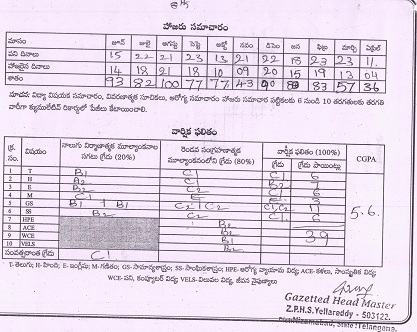 హాజరు సమాచారం
మాసం జూన్ జులై ఆగస్టు సెప్టె అక్టో నవం డిసెం జన ఫిబ్ర మార్చి ఏప్రిల్
పని దినాలు 15 22 21 23 13 21 22 18 23 23 11
హాజరైన దినాలు 14 18 21 18 10 09 20 15 19 13 04
శాతం 93 82 100 77 77 43 90 83 83 57 36
సూచన: విద్యా విషయక సమాచారం, వివరణాత్మక సూచికలు, ఆరోగ్య సమాచారం హాజరు సమాచార పట్టికలకు 6 నుండి 10 తరగతులకు తరగతి
వారీగా క్యుములేటివ్ రికార్డులో పేజీలు కేటాయించాలి.
వార్షిక ఫలితం
క్ర. సం. విషయం నాలుగు నిర్మాణాత్మక మూల్యాంకనాల సగటు గ్రేడు (20%) రెండవ సంగ్రహణాత్మక మూల్యాంకనంలోని గ్రేడు (80%) వార్షిక ఫలితం (100%) CGPA
గ్రేడు గ్రేడు పాయింట్లు
1 T B1 C1 C1 6
2 H A2 B2 7
3 E B2 C1 C1 6
4 M C1 E
5 GS B1 + B1 C2 C2
6 SS B2 C1 C1 6
7 HPE B2
8 ACE B2
9 WCE B1
10 VELS B2
39
5.6.
సంవత్సరాంత గ్రేడు C1
T- తెలుగు, H-హిందీ, E- ఇంగ్లీషు, M-గణితం, GS-సామాన్యశాస్త్రం, SS-సాంఘికశాస్త్రం, HPE-ఆరోగ్య వ్యాయామ విద్య ACE-కళలు, సాంస్కృతిక విద్య
WCE-పని, కంప్యూటర్ విద్య VELS-విలువల విద్య, జీవన నైపుణ్యాలు
Gazetted Head Master
Z.P.H.S. Yellareddy - 503122.
Dist:Nizamabad, State:Telangana.